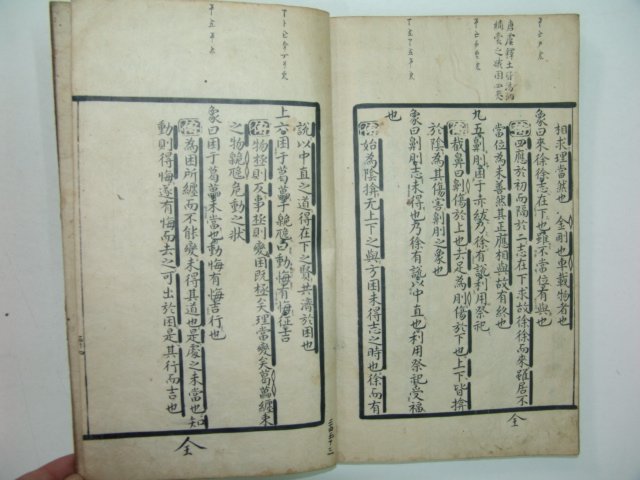 相求理當然也 金剛也車載物者也
象曰來徐徐志在下也雖不當位有與也
四應於初而隔於二志在下求故徐徐而來雖居不
當位為未善然其正應相與故有終也
九五劓刖困于赤紱乃徐有說利用祭祀
截鼻曰劓傷於上也去足為刖傷於下也上下皆揜
於陰為其傷害劓刖之象也
象曰劓刖志未得也乃徐有說以中直也利用祭祀受福
也
始為陰揜无上下之與方困未得志之時也徐而有
仝
說以中直之道得在下之賢共濟於困也
上六困于葛藟于臲卼曰動悔有悔征吉
物極則反事極則變困既極矣理當變矣葛藟纏束
之物臲卼危動之狀
象曰困于葛藟未當也動悔有悔吉行也
為困所纏而不能變未得其道也是處之未當也知
動則得悔遂有悔而去之可出於困是其行而吉也
仝